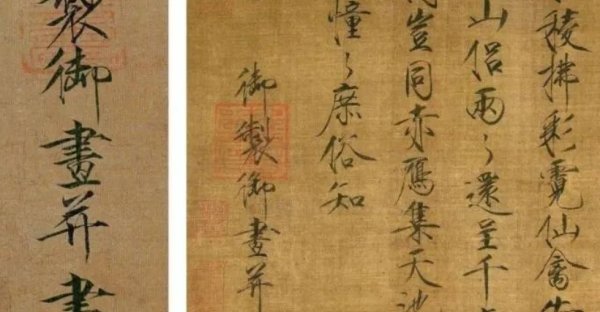 稜拂彩霓仙禽告
山侶兩〻還呈千
豈同赤鴈集天池
憧〻庶俗知
御製御畫并
製御畫并書